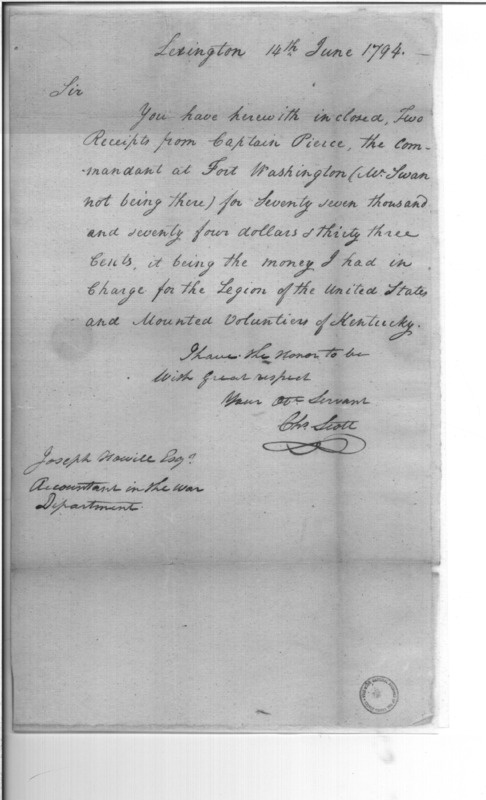 Lexington 14th June 1794.
Sir
You have herewith inclosed, Two
Receipts from Captain Pierce, the Com-
-mandant at Fort Washington (Mr. Swan
not being there) for Seventy seven thousand
and seventy four dollars & thirty three
Cents, it being the money I had in
Charge for the Legion of the United States
and Mounted Voluntiers of Kentucky.
I have the Honor to be
With great respect
Your Obt. Servant
Chs. Scott
Joseph Howell Esqr.
Accountant in the War
Department.